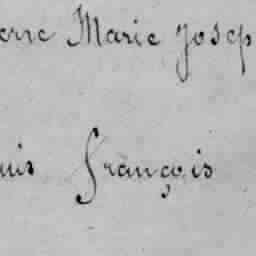 erre Marie Josep
uis François